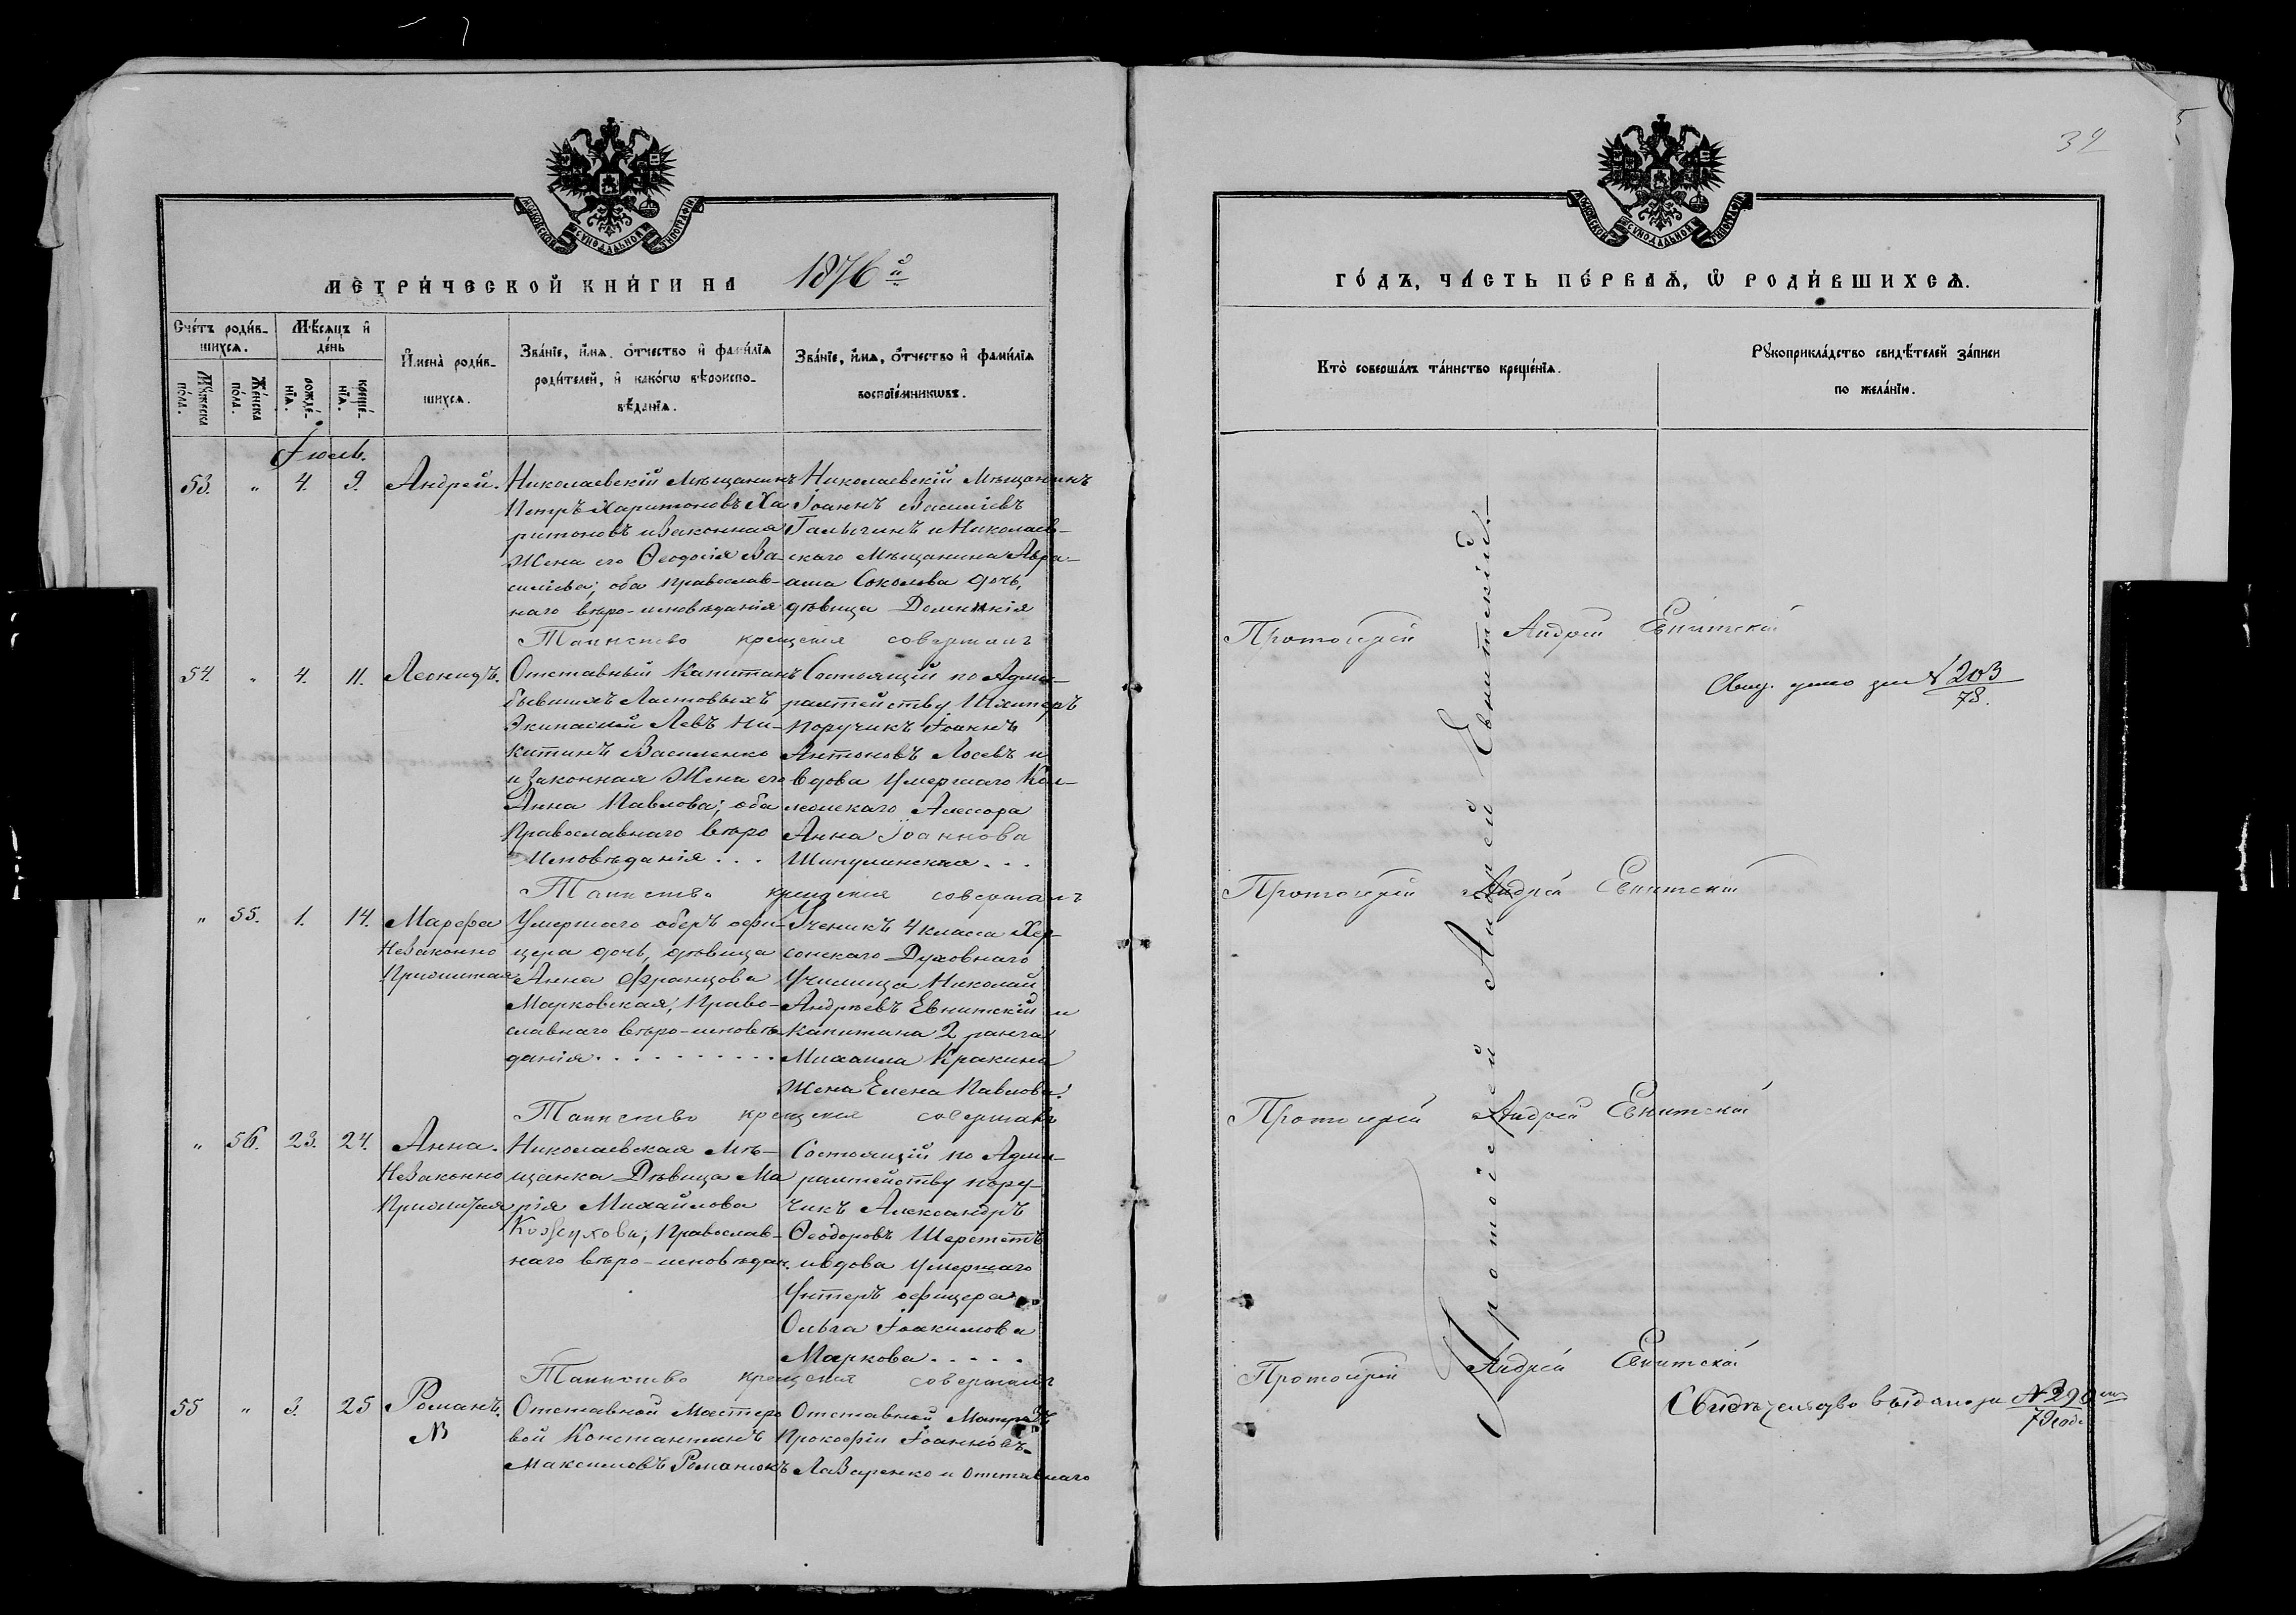 МОСКОВСКОЙ СѴНОДАЛЬНОЙ ТИПОГРАФІИ
МЕТРИ́ЧЕСКОЙ КНИ́ГИ НА 1876й
Сче́тъ роди́в-
шихсѧ.
Мꙋ́жеска
по́ла.
Же́нска
по́ла.
Мѣ́сѧцъ и҆
де́нь
рожде́-
нїѧ.
креще́-
нїѧ.
И҆мена̀ роди́в-
шихсѧ.
Зва́нїе, и҆́мѧ, ѻ҆́тчество и҆ фами́лїѧ
роди́телей, и҆ како́гѡ вѣроиспо-
вѣ́данїѧ.
Зва́нїе, и҆́мѧ, ѻ҆́тчество и҆ фами́лїѧ
воспрїе́мникѡвъ.
Іюль.
53. " 4. 9. Андрей.
Николаевскій Мѣщанинъ
Петръ Харитоновъ Ха
ритоновъ и Законная
Жена его Ѳеодосія Ва-
силіева; оба православ-
наго вѣро-исповѣданія
Николаевскій Мѣщанинъ
Іоаннъ Василіевъ
Галыгинъ и Николаев-
скаго Мѣщанина Авра-
ама Соколова дочь,
дѣвица Домникія
Таинство крещенія совершалъ
54. " 4. 11. Леонидъ.
Отставный Капитанъ
бывшихъ Ластовыхъ
Экипажей Левъ Ни-
китинъ Василенко
и Законная Жена его
Анна Павлова; оба
Православнаго вѣро
Исповѣданія . . .
Состоящій по Адми-
ралтейству Шхиперъ
Поручикъ Іоаннъ
Антоновъ Лосевъ и
вдова Умершаго Кол-
лежскаго Ассесора
Анна Іоаннова
Шипулинская . . .
Таинство крещенія совершалъ
" 55. 1. 14. Марѳа
НеЗаконно
Прижитая
Умершаго оберъ офи-
цера дочь, дѣвица
Анна Францова
Марковская; Право-
славнаго вѣро-исповѣ-
данія . . . . . . . . . .
Ученикъ 4 класса Хер-
сонскаго Духовнаго
Училища Николай
Андреевъ Евнитскій и
Капитана 2 ранга
Михаила Кракина
Жена Елена Павлова.
Таинство крещенія совершалъ
" 56. 23. 24. Анна.
НеЗаконно
Прижитая
Николаевская Мѣ-
щанка Дѣвица Ма
рія Михайлова
Кожухова; Православ-
наго вѣро-исповѣдан.
Состоящій по Адми-
ралтейству пору-
чикъ Александръ
Ѳеодоровъ Шерстетъ
и вдова умершаго
Унтеръ офицера
Ольга Іоакимова
Маркова . . . . .
Таинство крещенія совершалъ
55 " 3. 25 Романъ.
Отставной Мастеро
вой Константинъ
Максимовъ Романюкъ
Отставной Матрозъ
Прокофій Іоанновъ
Лазаренко и Отставнаго
МОСКОВСКОЙ СѴНОДАЛЬНОЙ ТИПОГРАФІИ
ГО́ДЪ, ЧА́СТЬ ПЕ́РВАѦ, Ѡ҆ РОДИ́ВШИХСѦ.
Кто̀ соверша́лъ та́инство креще́нїѧ.
Рꙋкоприкла́дство свидѣ́телей за́писи
по жела́нїю.
Протоіерей Андрей Евнитскій
Протоіерей Андрей Евнитскій
№ 203
78.
Протоіерей Андрей Евнитскій
Протоіерей Андрей Евнитскій
Протоіерей Андрей Евнитскій.
Свидѣтельство выдано за №